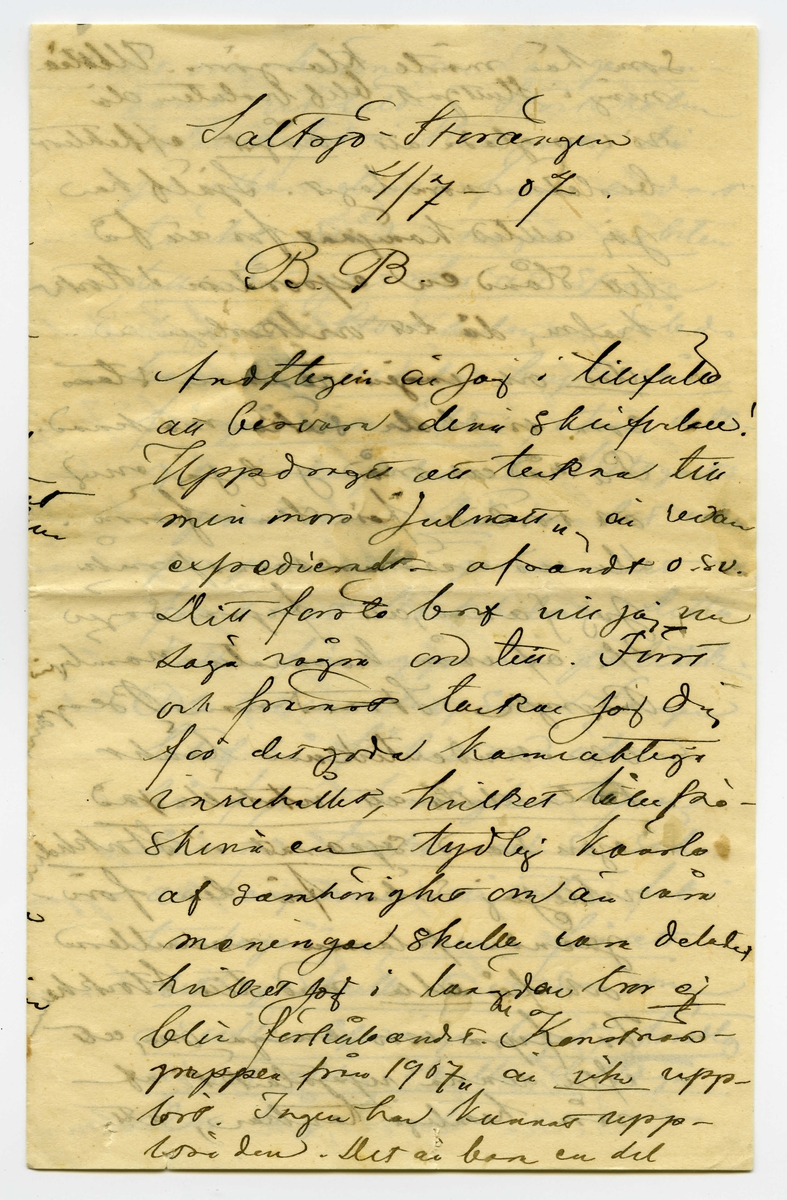 Saltsjö-Storängen
4/7 - 07.
B. B.
Ändtligen är jag i tillfälle
att besvara dina skrifvelser!
Uppdraget att teckna till
min mors "Julnatt" är redan
expedieradt - afsändt o.sv.
Ditt första bref vill jag nu
säga några ord till. Först
och främst tackar jag dig
för det goda kamratliga
innehållet, hvilket låter
skina en tydlig känsla
af samhörighet om än våra
meningar skulle vara delade,
hvilket jag i längden tror ej
blir förhållandet. "Konstnärs-
gruppen från 1907" är icke upp-
löst. Ingen har kunnat upp-
lösa den. Det är bara en del